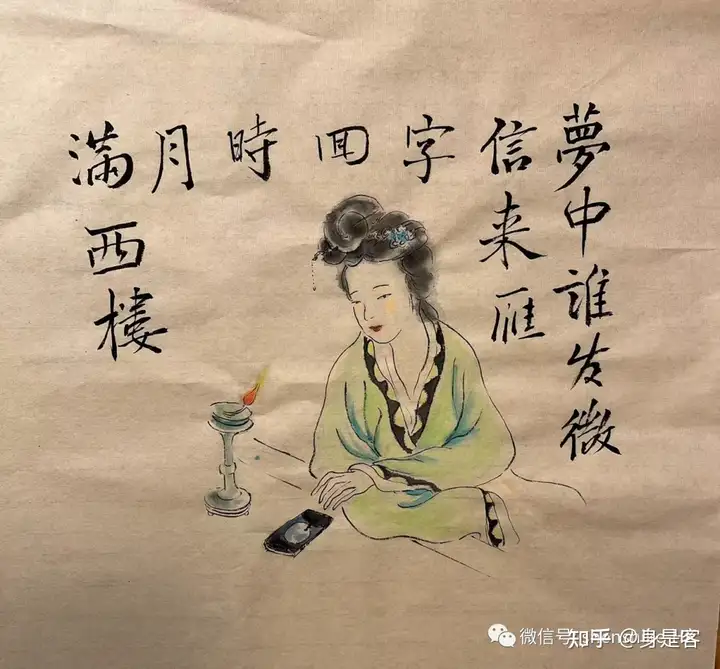 夢中誰发微
信来雁
字
回
時
月
滿西樓
微信号
知乎 @身是客